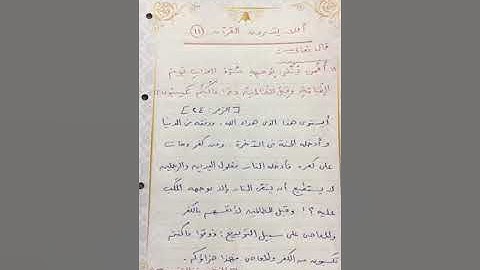 أفلا يتدبرون القرآن (١١)
قال تعالى:
"أفمن يتقي بوجهه سوء العذاب يوم
القيامة وقيل للظالمين ذوقوا ما كنتم تكسبون"
[الزمر: ٢٤]
أيستوى هذا الذى هداه الله، ووفقه فى الدنيا
وأدخله الجنة فى الآخرة، ومن كفر ومات
على كفره، فأدخله النار مغلول اليدين والرجلين
لا يستطيع أن يتقى النار إلا بوجهه المكب
عليه؟! وقيل للظالمين لأنفسهم بالكفر
والمعاصى على سبيل التوبيخ: ذوقوا ما كنتم
تكسبون من الكفر والمعاصى فهذا جزاؤكم.